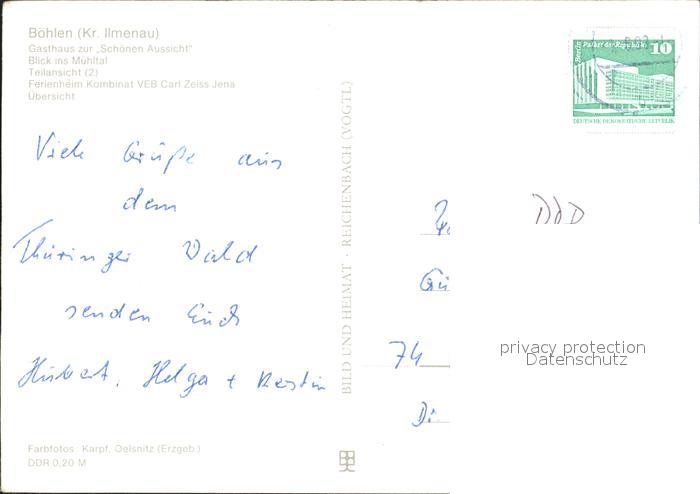 Böhlen (Kr. Ilmenau)
Gasthaus zur „Schönen Aussicht"
Blick ins Mühltal
Teilansicht (2)
Ferienheim Kombinat VEB Carl Zeiss Jena
Übersicht
Berlin Palast der Republik 10
DEUTSCHE DEMOKRATISCHE REPUBLIK
Viele Grüße aus
dem
Thüringer Wald
senden Euch
Hubert, Helga + Kerstin
BILD UND HEIMAT · REICHENBACH (VOGTL)
Gü
74
privacy protection
Datenschutz
Farbfotos: Karpf, Oelsnitz (Erzgeb.)
DDR 0,20 M